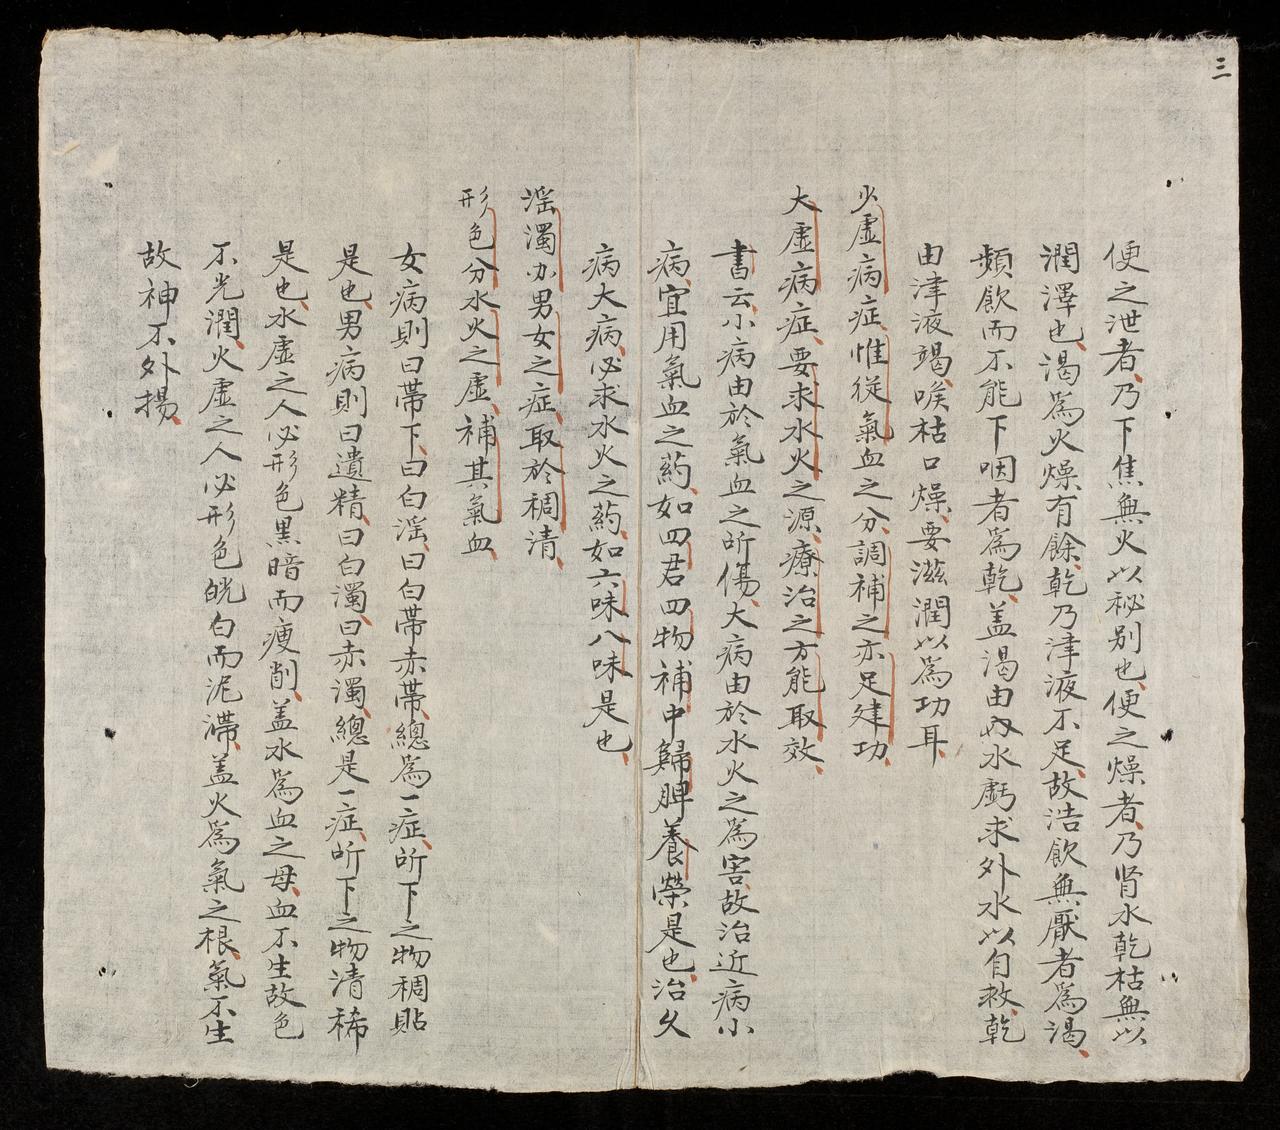 三
便之泄者乃下焦無火以秘别也便之燥者乃肾水乾枯無以
潤澤也渴為火燥有餘乾乃津液不足故浩飲無厭者為渴
頻飲而不能下咽者為乾盖渴由内水虧求外水以自救乾
由津液竭喉枯口燥要滋潤以為功耳
火虚病症惟從氣血之分調補之亦足建功
大虚病症要求水火之源療治之方能取效
書云小病由於氣血之所傷大病由於水火之為害故治近病小
病宜用氣血之药如四君四物補中歸脾養榮是也治久
病大病必求水火之药如六味八味是也
滛濁办男女之症取於稠清
形色分水火之虚補其氣血
女病則曰帶下曰白滛曰白帶赤帶總為一症所下之物稠貼
是也男病則曰遺精曰白濁曰赤濁總是一症所下之物清稀
是也水虚之人必形色黒暗而瘦削盖水為血之母血不生故色
不光潤火虚之人必形色㿠白而泥滯盖火為氣之根氣不生
故神不外揚